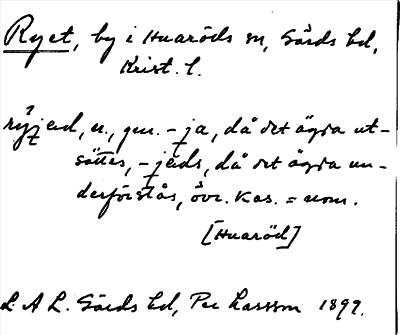 Ryet, by i Huaröds sn, Gärds hd,
Krist. l.
ryjed, n., gen. -ja, då det ägda ut-
sättes, -jeds, då det ägda un-
derförstås, övr. kas. = nom.
[Huaröd]
L. A. L. Gärds hd, Per Larsson 1899.